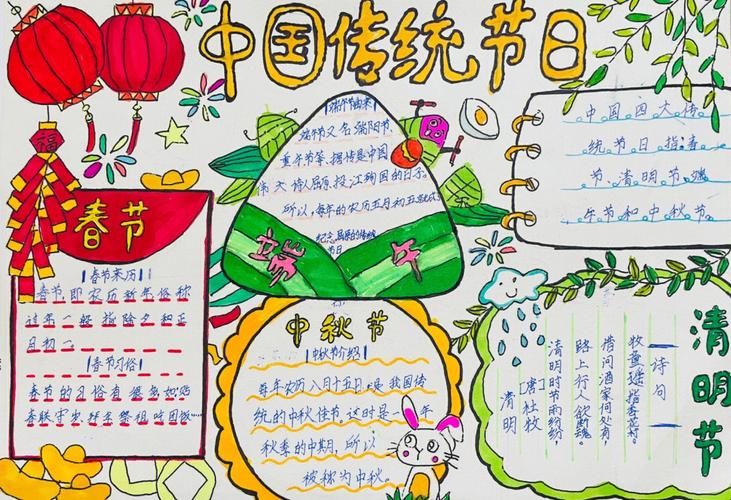 中国传统节日
福
春节
春节来历
春节即农历新年俗称
过年一般指除夕和正
月初一。
春节习俗
春节的习俗有很多如:贴
春联守岁拜年祭祖吃团饭……
端午节由来
端午节又名端阳节、
重午节等,据传是中国
伟大诗人屈原投江殉国的日子。
所以,每年的农历五月初五就成
纪念屈原的传统
节日
端午
中国四大传
统节日指:春
节、清明节、端
午节和中秋节。
中秋节
中秋节介绍
每年农历八月十五日,是我国传
统的中秋佳节。这时是一年
秋季的中期,所以
被称为中秋。
清明节
诗句
清明
[唐]杜牧
清明时节雨纷纷
路上行人欲断魂。
借问酒家何处有,
牧童遥指杏花村。